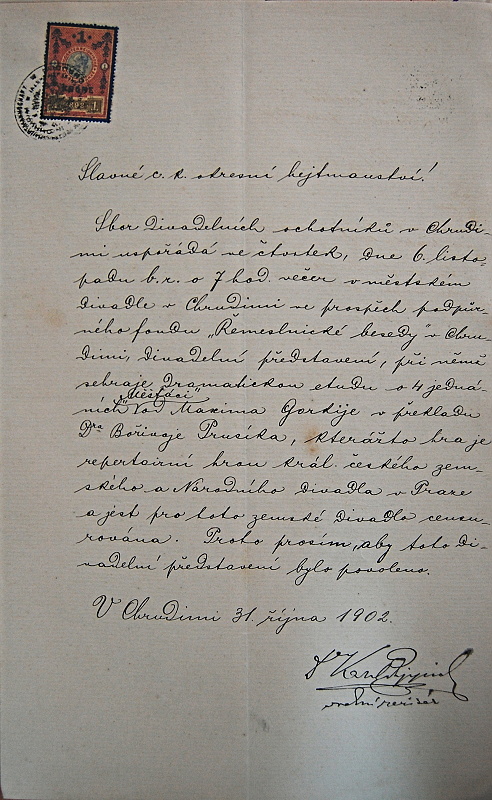 1
1898
1
Slavné c. k. okresní hejtmanství!
Sbor divadelních ochotníků v Chrudi-
mi uspořádá ve čtvrtek, dne 6. listo-
padu b. r. o 7 hod. večer v městském
divadle v Chrudimi ve prospěch podpůr-
ného fondu „Řemeslnické besedy" v Chru-
dimi, divadelní představení, při němž
sehraje dramatickou etudu o 4 jedná-
ních „Měšťáci" od Maxima Gorkije v překladu
Dra Bořivoje Prusíka, kterážto hra je
repertoirní hrou král. českého zem-
ského a Národního divadla v Praze
a jest pro toto zemské divadlo censu-
rována. Proto prosím, aby toto di-
vadelní představení bylo povoleno.
V Chrudimi 31. října 1902.
Dr Karel
režisér